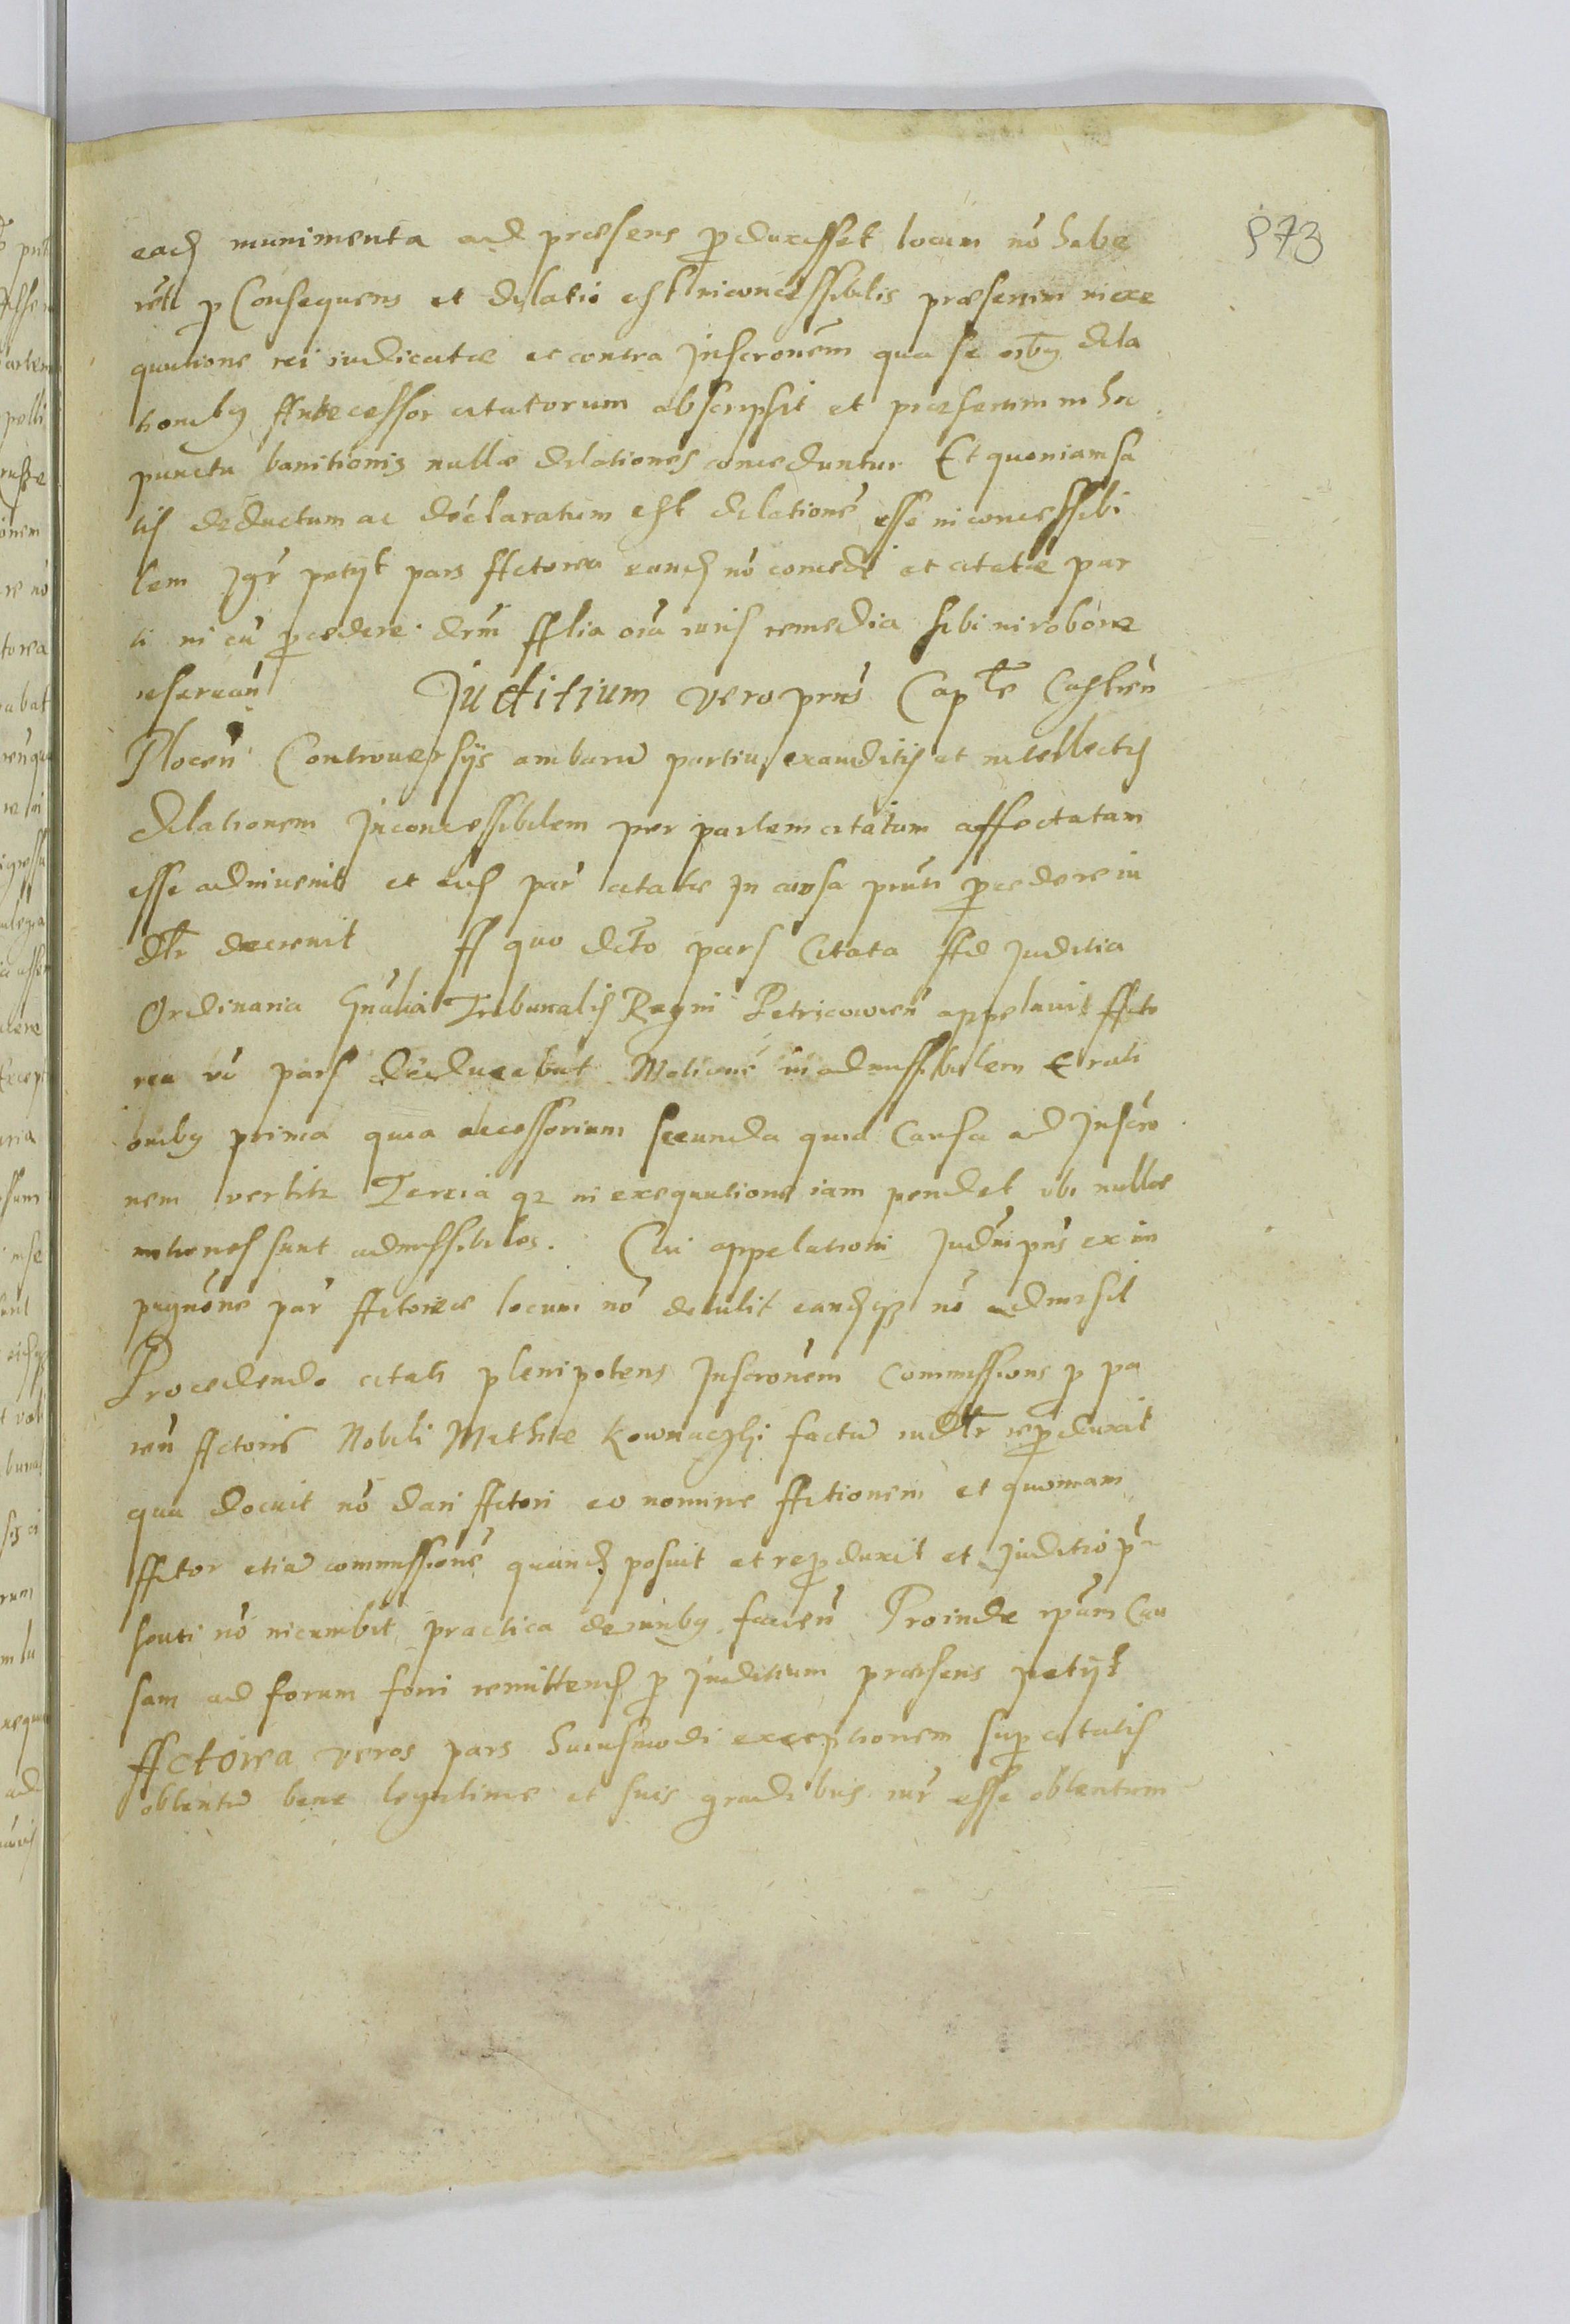 573
eadē munimenta ad præsens pduxisset locum nō habe
ret p Consequens et dilatio est inconcessibilis præsertim in exe
quutione rei iudicatæ et contra Inscronem qua se oībꝫ dila
tionibꝫ Antecessor citatorum abscripsit et præsertim in hoc
punctu banitionis nullæ dilationes conceduntur Et quoniam sa
tis deductum ac declaratum est dilationē esse inconcessibi
lem Igr petijt pars Actorea eandē nō concedi et citatæ par
ti in cā pcedere drm Alia oīa iuris remedia sibi in robore
reseruan Juditium vero pñs Capłe Castreñ
Ploceñ Controuersijs ambarū partiū exauditis et intellectis
dilationem Inconcessibilem per partem citatam affectatam
esse adinuenit et eidē par citatæ in causa pñti pcedere iu
dłr decreuit A quo dcto pars Citata Ad Juditia
Ordinaria Gñalia Tribunalis Regni Petricouieñ appelauit Acto
rea vō pars deducebat Motionē inadmissibilem Et rati
onibꝫ prima quia accessorium secunda quia Causa ad Inscro
nem vertitr Tercia qꝫ in exequutione iam pendet vbi nullæ
motiones sunt admissibiles. Cui appelationi Judm pñs ex im
pugnōne par Actoreæ locum nō detulit eandēqꝫ nō admisit
Procedendo citati plenipotens Inscronem Commissions p pa
ren Actoris Nobili Mathiæ Kownaczki factā iudłr repduxit
qua docuit nō dari Actori eo nomine Actionem et quoniam
Actor etiā commissionē quandē posuit et repduxit et Juditio p
senti nō incumbit practica de iuribꝫ facien Proinde ipsam Cau
sam ad forum fori remittendē p Juditium præsens petijt
Actorea veros pars huiusmodi exceptionem sup citatis
obtentū bene legitime et suis gradibus iur esse obtentum